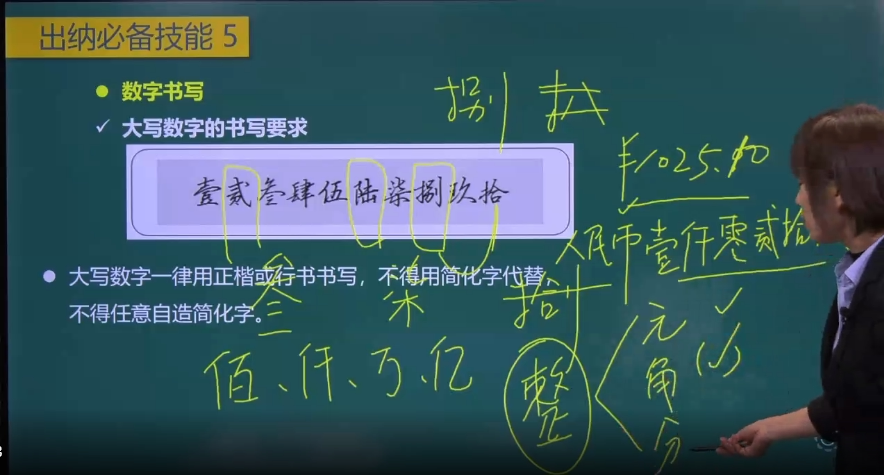 出纳必备技能 5
数字书写
大写数字的书写要求
壹贰叁肆伍陆柒捌玖拾
大写数字一律用正楷或行书书写，不得用简化字代替，
不得任意自造简化字。
捌
¥1025.90
人民币壹仟零贰拾
叁
柒
拾
佰、仟、万、亿
整
元 ✓
角 (✓)
分